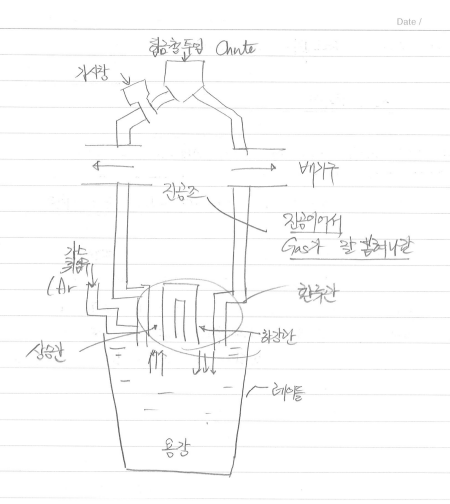 Date /
합금철투입 Chute
가시창
배기구
진공조
진공이어서
Gas가 잘 빠져나감
가스
취입구
(Ar
환류관
상승관
하강관
레이들
용강